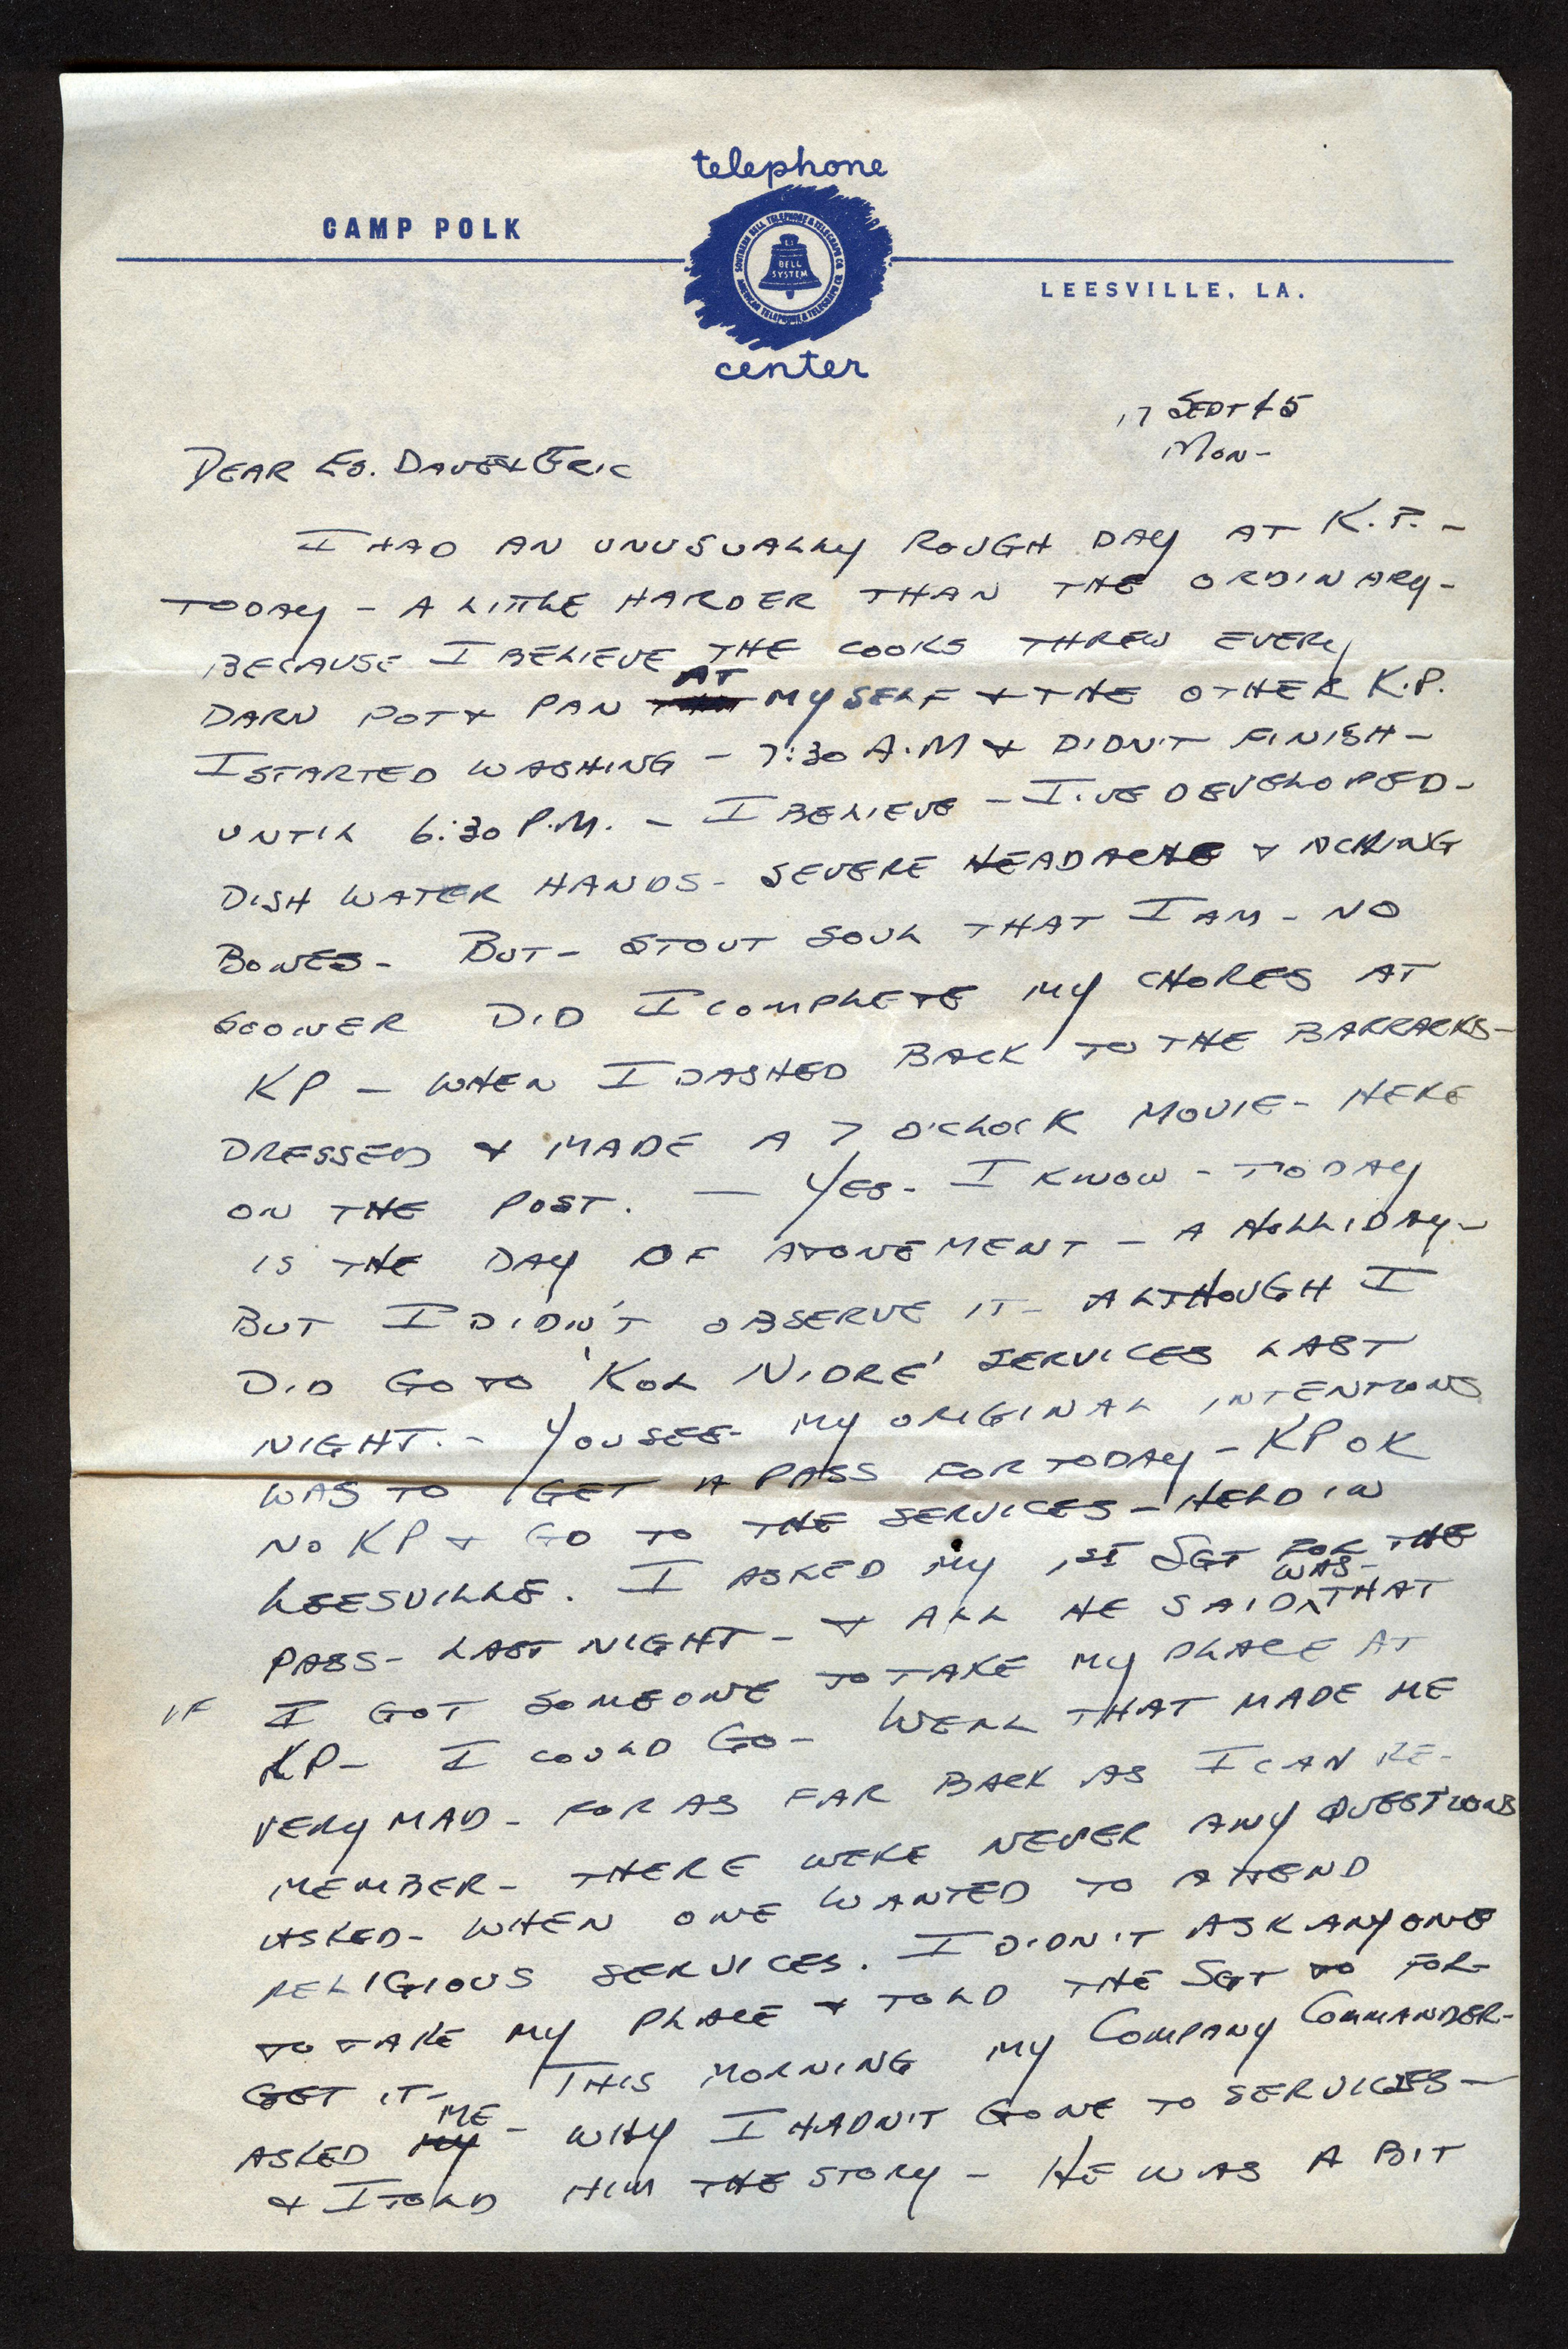 telephone
CAMP POLK
SOUTHERN BELL TELEPHONE & TELEGRAPH CO.
BELL
SYSTEM
AMERICAN TELEPHONE & TELEGRAPH CO.
LEESVILLE, LA.
center
17 SEPT 45
MON-
DEAR ES. DAVE & ERIC
I HAD AN UNUSUALLY ROUGH DAY AT K.P. -
TODAY - A LITTLE HARDER THAN THE ORDINARY -
BECAUSE I BELIEVE THE COOKS THREW EVERY
DARN POT & PAN AT MYSELF & THE OTHER K.P.
I STARTED WASHING - 7:30 A.M & DIDN'T FINISH -
UNTIL 6:30 P.M. - I BELIEVE - I'VE DEVELOPED -
DISH WATER HANDS - SEVERE HEADACHE & ACHING
BONES - BUT - STOUT SOUL THAT I AM - NO
SOONER DID I COMPLETE MY CHORES AT
KP - WHEN I DASHED BACK TO THE BARRACKS -
DRESSED & MADE A 7 O'CLOCK MOVIE - HERE
ON THE POST. — YES - I KNOW - TODAY
IS THE DAY OF ATONEMENT - A HOLLIDAY -
BUT I DIDN'T OBSERVE IT - ALTHOUGH I
DID GO TO 'KOL NIDRE' SERVICES LAST
NIGHT. - YOU SEE - MY ORIGINAL INTENTIONS
WAS TO GET A PASS FOR TODAY - KP OR
NO KP & GO TO THE SERVICES - HELD IN
LEESVILLE. I ASKED MY 1ST SGT FOR THE
PASS - LAST NIGHT - & ALL HE SAID WAS - THAT
IF I GOT SOMEONE TO TAKE MY PLACE AT
KP - I COULD GO - WELL THAT MADE ME
VERY MAD - FOR AS FAR BACK AS I CAN RE-
MEMBER - THERE WERE NEVER ANY QUESTIONS
ASKED - WHEN ONE WANTED TO ATTEND
RELIGIOUS SERVICES. I DIDN'T ASK ANYONE
TO TAKE MY PLACE & TOLD THE SGT TO FOR-
GET IT - THIS MORNING MY COMPANY COMMANDER -
ASKED MY ME - WHY I HADN'T GONE TO SERVICES —
& I TOLD HIM THE STORY - HE WAS A BIT